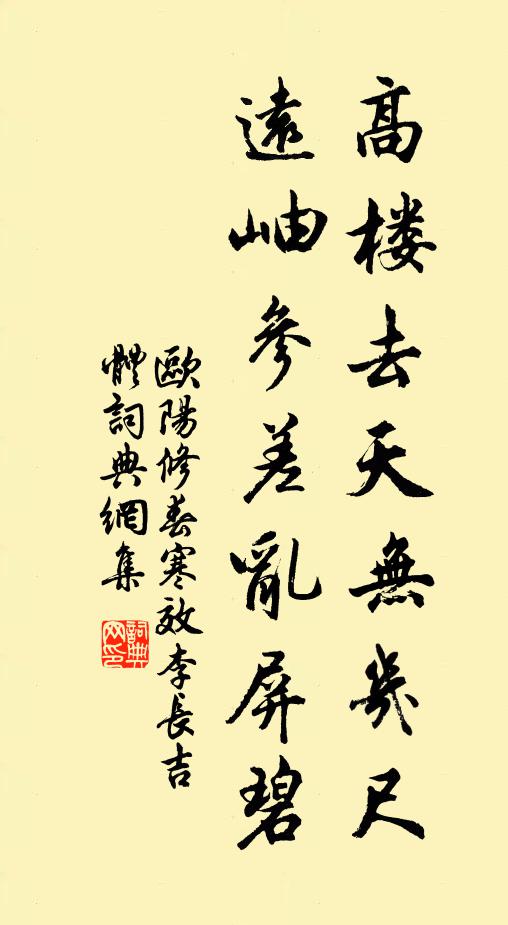 高楼去天無幾尺
遠岫參差亂屏碧
歐陽修春寒效李長吉
體詞典網集
詞典
网印